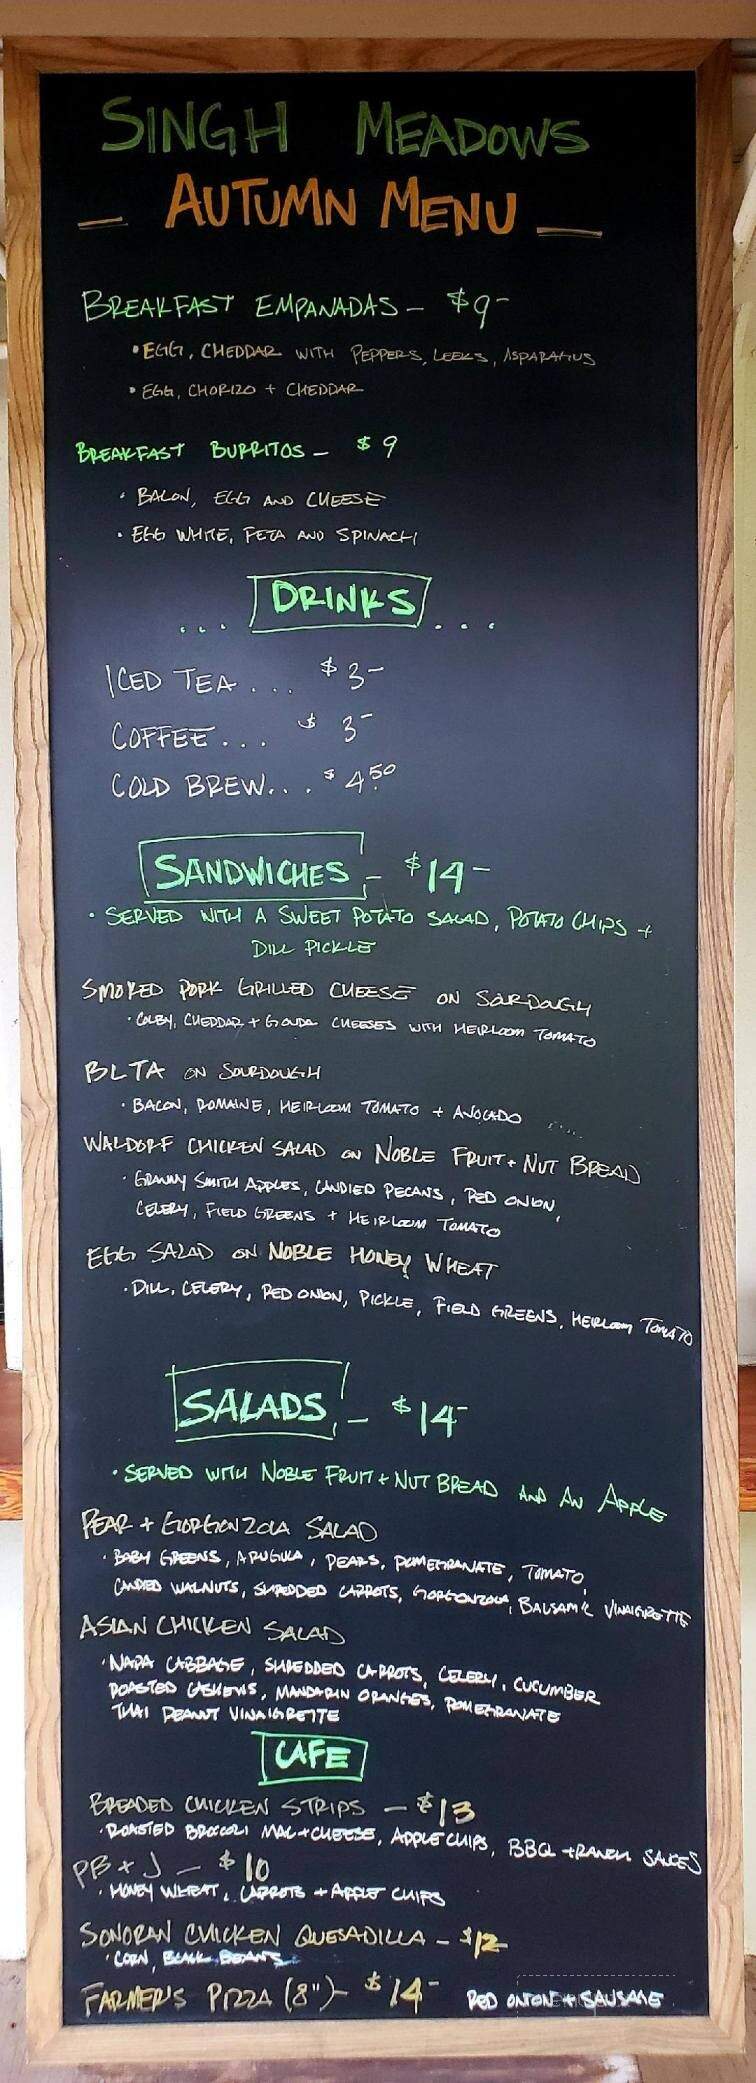 SINGH MEADOWS
— AUTUMN MENU —
BREAKFAST EMPANADAS - $9-
• EGG, CHEDDAR WITH PEPPERS, LEEKS, ASPARAGUS
• EGG, CHORIZO + CHEDDAR
BREAKFAST BURRITOS - $9
• BACON, EGG AND CHEESE
• EGG WHITE, FETA AND SPINACH
... DRINKS ...
ICED TEA... $3-
COFFEE... $3-
COLD BREW... $4.50
SANDWICHES - $14-
• SERVED WITH A SWEET POTATO SALAD, POTATO CHIPS +
DILL PICKLE
SMOKED PORK GRILLED CHEESE ON SOURDOUGH
• COLBY, CHEDDAR + GOUDA CHEESES WITH HEIRLOOM TOMATO
BLTA ON SOURDOUGH
• BACON, ROMAINE, HEIRLOOM TOMATO + AVOCADO
WALDORF CHICKEN SALAD ON NOBLE FRUIT + NUT BREAD
• GRANNY SMITH APPLES, CANDIED PECANS, RED ONION,
CELERY, FIELD GREENS + HEIRLOOM TOMATO
EGG SALAD ON NOBLE HONEY WHEAT
• DILL, CELERY, RED ONION, PICKLE, FIELD GREENS, HEIRLOOM TOMATO
SALADS - $14-
• SERVED WITH NOBLE FRUIT + NUT BREAD AND AN APPLE
PEAR + GORGONZOLA SALAD
• BABY GREENS, ARUGULA, PEARS, POMEGRANATE, TOMATO,
CANDIED WALNUTS, SHREDDED CARROTS, GORGONZOLA, BALSAMIC VINAIGRETTE
ASIAN CHICKEN SALAD
• NAPA CABBAGE, SHREDDED CARROTS, CELERY, CUCUMBER
ROASTED CASHEWS, MANDARIN ORANGES, POMEGRANATE
THAI PEANUT VINAIGRETTE
CAFE
BREADED CHICKEN STRIPS - $13
• ROASTED BROCCOLI MAC + CHEESE, APPLE CHIPS, BBQ + RANCH SAUCES
PB + J - $10
• HONEY WHEAT, CARROTS + APPLE CHIPS
SONORAN CHICKEN QUESADILLA - $12
• CORN, BLACK BEANS
FARMER'S PIZZA (8") - $14- RED ONION + SAUSAGE